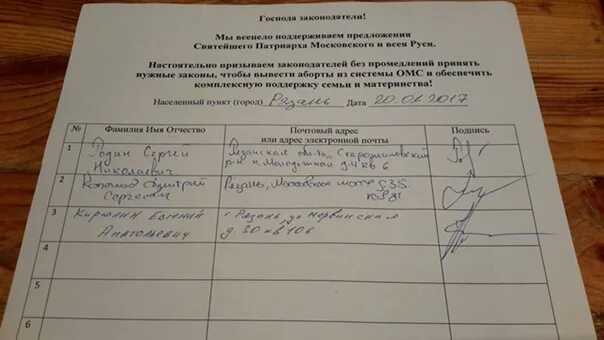 Господа законодатели!
Мы всецело поддерживаем предложения
Святейшего Патриарха Московского и всея Руси.
Настоятельно призываем законодателей без промедлений принять
нужные законы, чтобы вывести аборты из системы ОМС и обеспечить
комплексную поддержку семьи и материнства!
Населенный пункт (город) Рязань Дата 20.06.2017
№ Фамилия Имя Отчество Почтовый адрес Подпись
или адрес электронной почты
1 Родин Сергей Рязанская обл-ть, Старожиловский
Николаевич р-н п. Молодёжной д-4 кв 6
2 Дмитрий Рязань, Московское шоссе д.35
Сергеевич
3 Кирюшин Евгений г. Рязань, ул
Анатольевич д. 30 кв 106
4
5
6